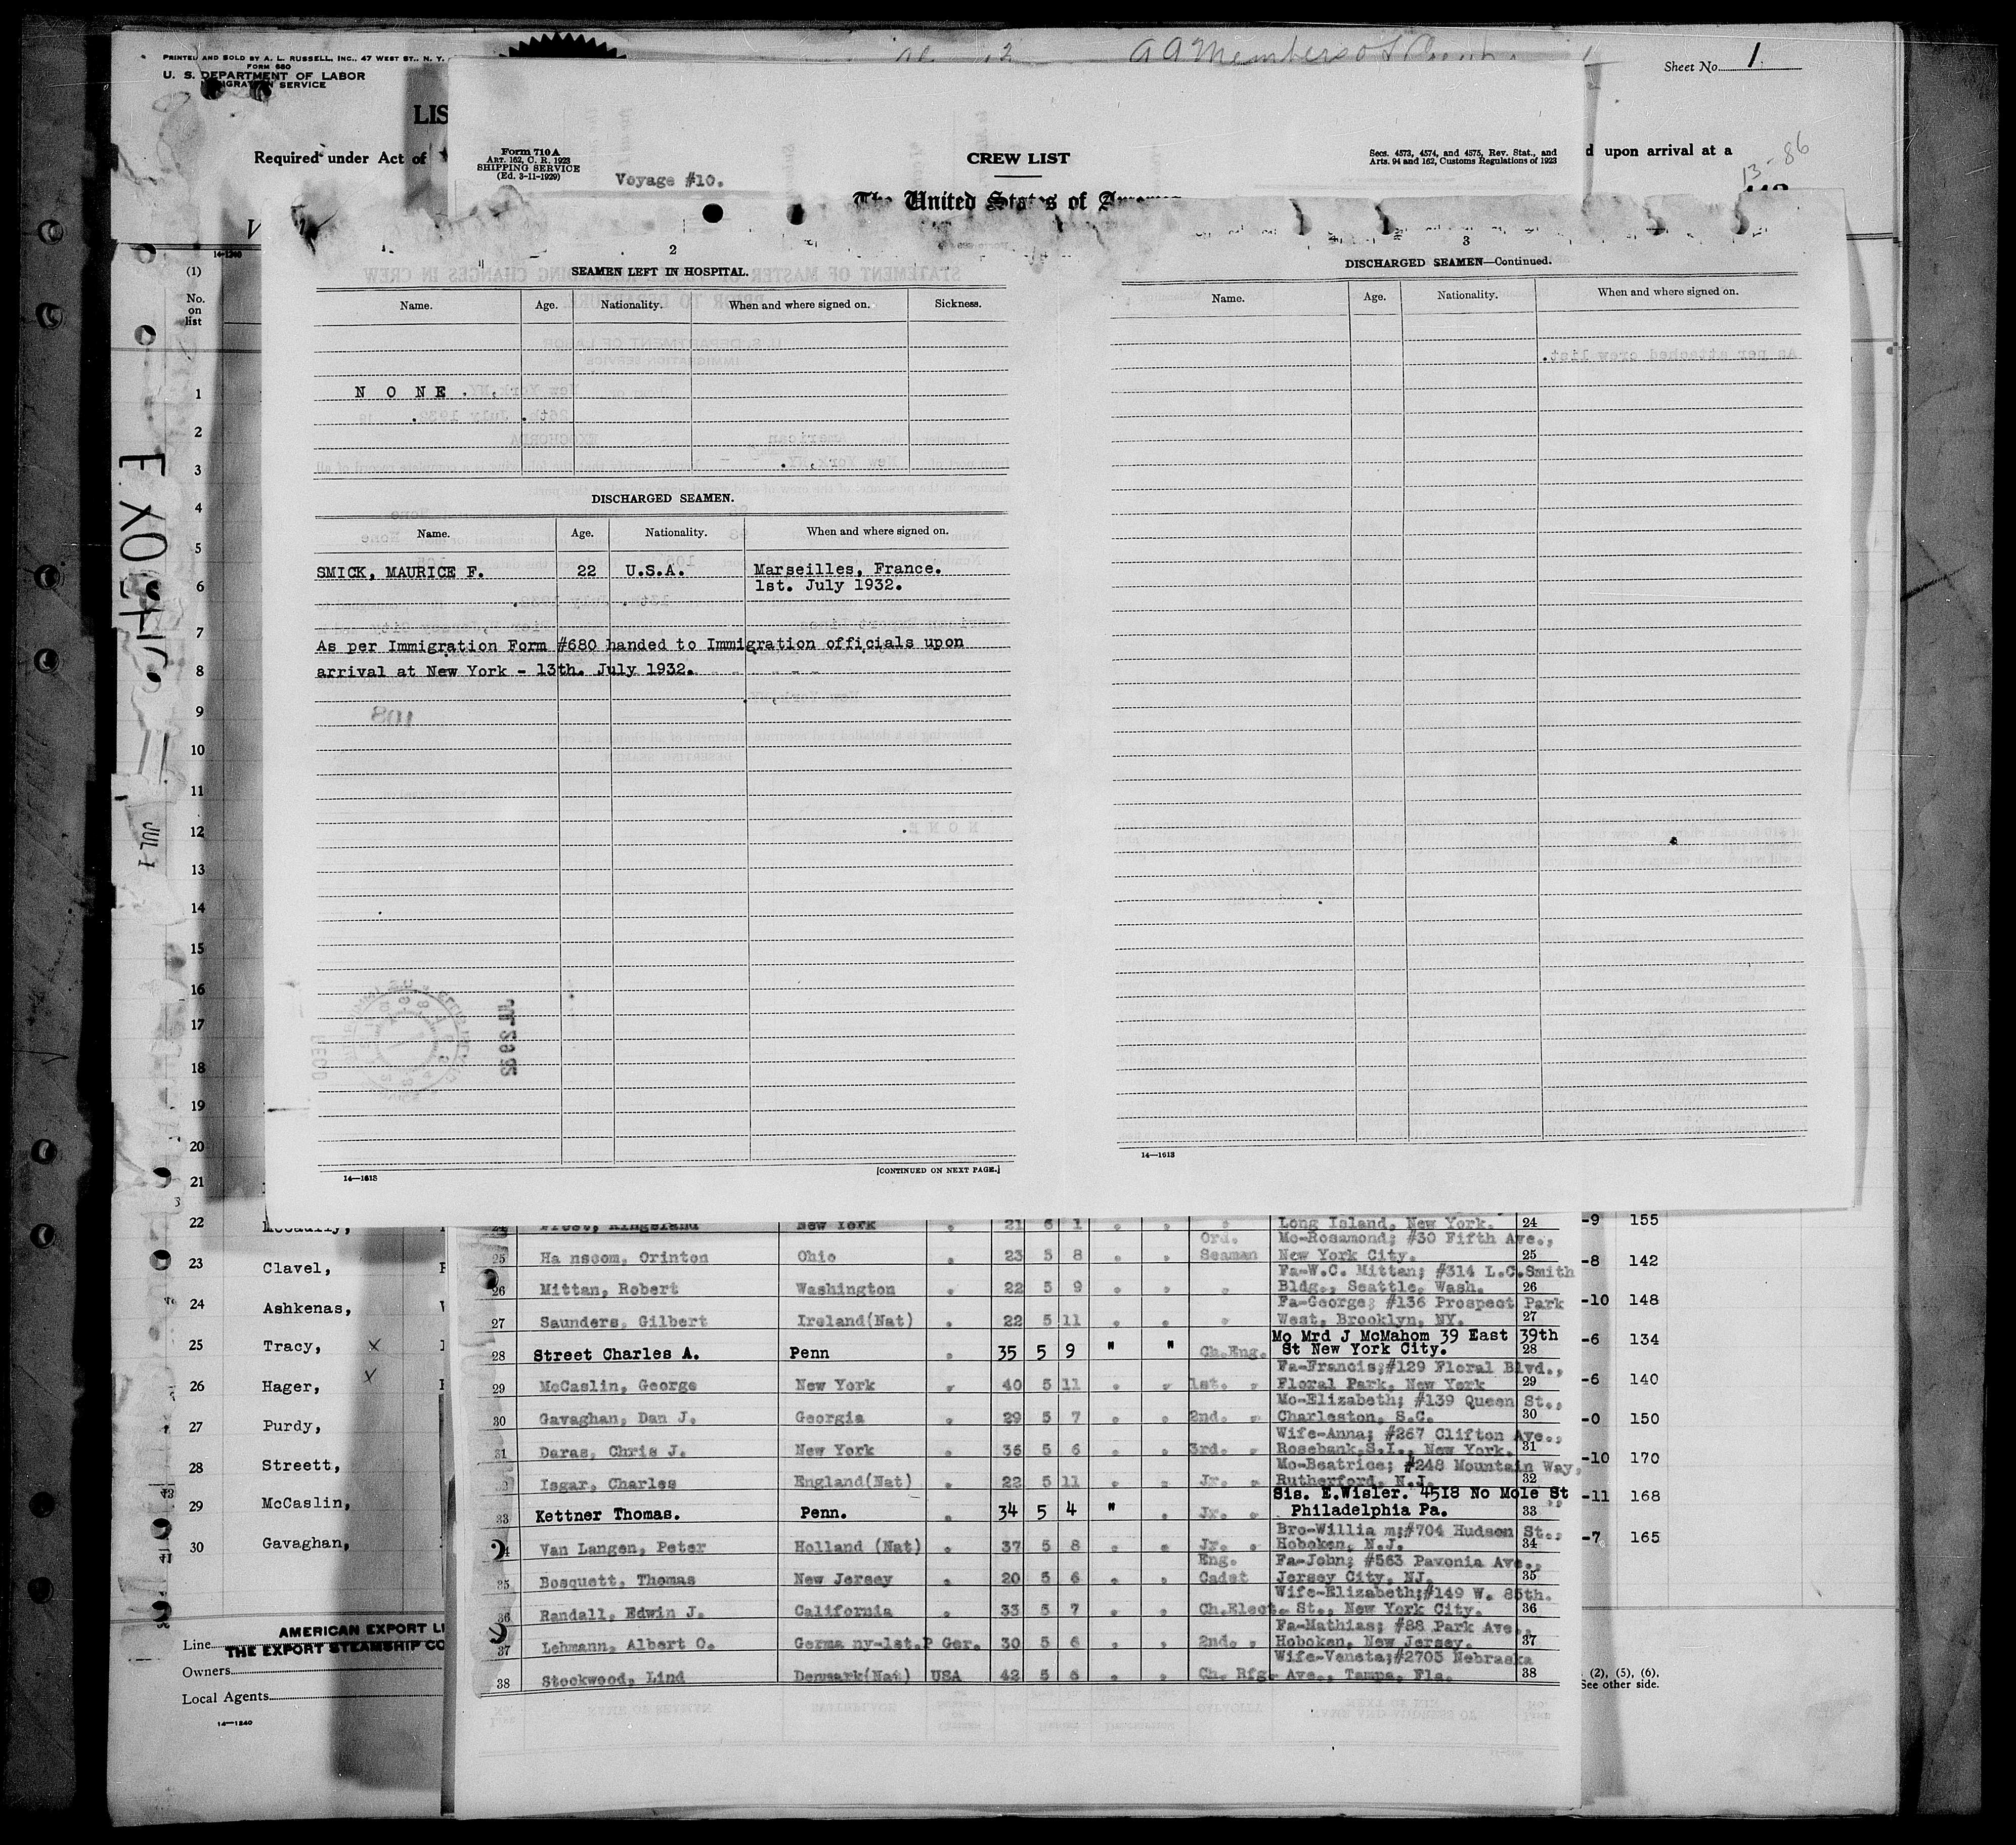 PRINTED AND SOLD BY A. L. RUSSELL, INC., 47 WEST ST., N. Y.
FORM 680
U. S. DEPARTMENT OF LABOR
IMMIGRATION SERVICE
Sheet No. 1
LIS
Required under Act of
d upon arrival at a
13-86
Form 710A
ART. 162, C. R. 1923
SHIPPING SERVICE
(Ed. 3-11-1929)
Voyage #10.
CREW LIST
Secs. 4573, 4574, and 4575, Rev. Stat., and
Arts. 94 and 162, Customs Regulations of 1923
The United States of America
14-1240
(1)
No.
on
list
2
SEAMEN LEFT IN HOSPITAL.
Name. Age. Nationality. When and where signed on. Sickness.
N O N E .
DISCHARGED SEAMEN.
Name. Age. Nationality. When and where signed on.
SMICK, MAURICE F. 22 U.S.A. Marseilles, France.
1st. July 1932.
As per Immigration Form #680 handed to Immigration officials upon
arrival at New York - 13th. July 1932.
[CONTINUED ON NEXT PAGE.]
14-1613
3
DISCHARGED SEAMEN—Continued.
Name. Age. Nationality. When and where signed on.
14-1613
1
2
3
4
5
6
7
8
9
10
11
12
13
14
15
16
17
18
19
20
21
22
23 Clavel,
24 Ashkenas,
25 Tracy, x
26 Hager, x
27 Purdy,
28 Streett,
29 McCaslin,
30 Gavaghan,
EXOCHO
JUL 1
24 Frost, Kingsland New York 21 6 1 Long Island, New York. 24
25 Hanscom, Orinton Ohio 23 5 8 Ord. Seaman Mo-Rosamond; #30 Fifth Ave., New York City. 25
26 Mittan, Robert Washington 22 5 9 Fa-W.C. Mittan; #314 L.C.Smith Bldg., Seattle, Wash. 26
27 Saunders, Gilbert Ireland(Nat) 22 5 11 Fa-George; #136 Prospect Park West, Brooklyn, NY. 27
28 Street Charles A. Penn 35 5 9 " " Ch.Eng. Mo Mrd J McMahom 39 East 39th St New York City. 28
29 McCaslin, George New York 40 5 11 1st. Fa-Francis;#129 Floral Blvd., Floral Park, New York 29
30 Gavaghan, Dan J. Georgia 29 5 7 2nd. Mo-Elizabeth; #139 Queen St., Charleston, S.C. 30
31 Daras, Chris J. New York 36 5 6 3rd. Wife-Anna; #267 Clifton Ave., Rosebank,S.I., New York. 31
Isgar, Charles England(Nat) 22 5 11 Jr. Mo-Beatrice; #248 Mountain Way, Rutherford, N.J. 32
33 Kettner Thomas. Penn. 34 5 4 " Jr. Sis. E.Wisler. 4518 No Mole St Philadelphia Pa. 33
Van Langen, Peter Holland (Nat) 37 5 8 Jr. Bro-William;#704 Hudson St., Hoboken, N.J. 34
35 Bosquett, Thomas New Jersey 20 5 6 Eng. Cadet Fa-John; #563 Pavonia Ave., Jersey City, NJ. 35
36 Randall, Edwin J. California 33 5 7 Ch.Elect. Wife-Elizabeth;#149 W. 85th. St., New York City. 36
37 Lehmann, Albert O. Germany-1st.P Ger. 30 5 6 2nd. Fa-Mathias; #88 Park Ave., Hoboken, New Jersey. 37
38 Stockwood, Lind Denmark(Nat) USA 42 5 6 Ch. Rfg. Wife-Veneta;#2705 Nebraska Ave., Tampa, Fla. 38
-9 155
-8 142
-10 148
-6 134
-6 140
-0 150
-10 170
-11 168
-7 165
Line AMERICAN EXPORT LI
THE EXPORT STEAMSHIP CO
Owners
Local Agents
14-1240
(2), (5), (6).
See other side.